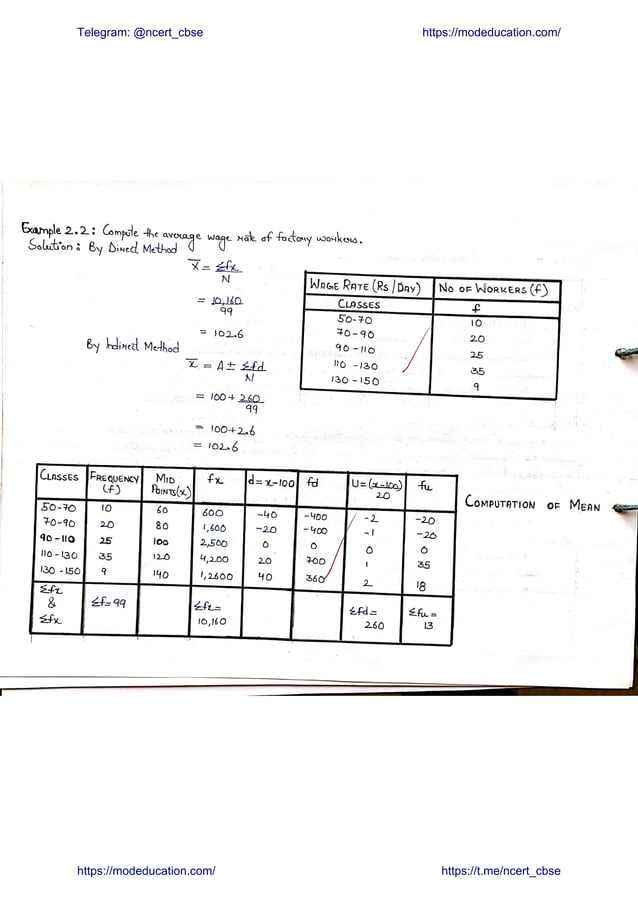 Telegram: @ncert_cbse https://modeducation.com/
Example 2.2: Compute the average wage rate of factory workers.
Solution: By Direct Method
x̅ = Σfx
N
= 10,160
99
= 102.6
By Indirect Method
x̅ = A ± Σfd
N
= 100 + 260
99
= 100+2.6
= 102.6
WAGE RATE (RS / DAY) NO OF WORKERS (f)
CLASSES f
50-70 10
70-90 20
90-110 25
110-130 35
130-150 9
CLASSES FREQUENCY (f) MID POINTS(x) fx d=x-100 fd U=(x-100) 20 fu
50-70 10 60 600 -40 -400 -2 -20
70-90 20 80 1,600 -20 -400 -1 -20
90-110 25 100 2,500 0 0 0 0
110-130 35 120 4,200 20 700 1 35
130-150 9 140 1,2600 40 360 2 18
Σfx & Σfx Σf=99 Σfx= 10,160 Σfd= 260 Σfu= 13
COMPUTATION OF MEAN
https://modeducation.com/ https://t.me/ncert_cbse